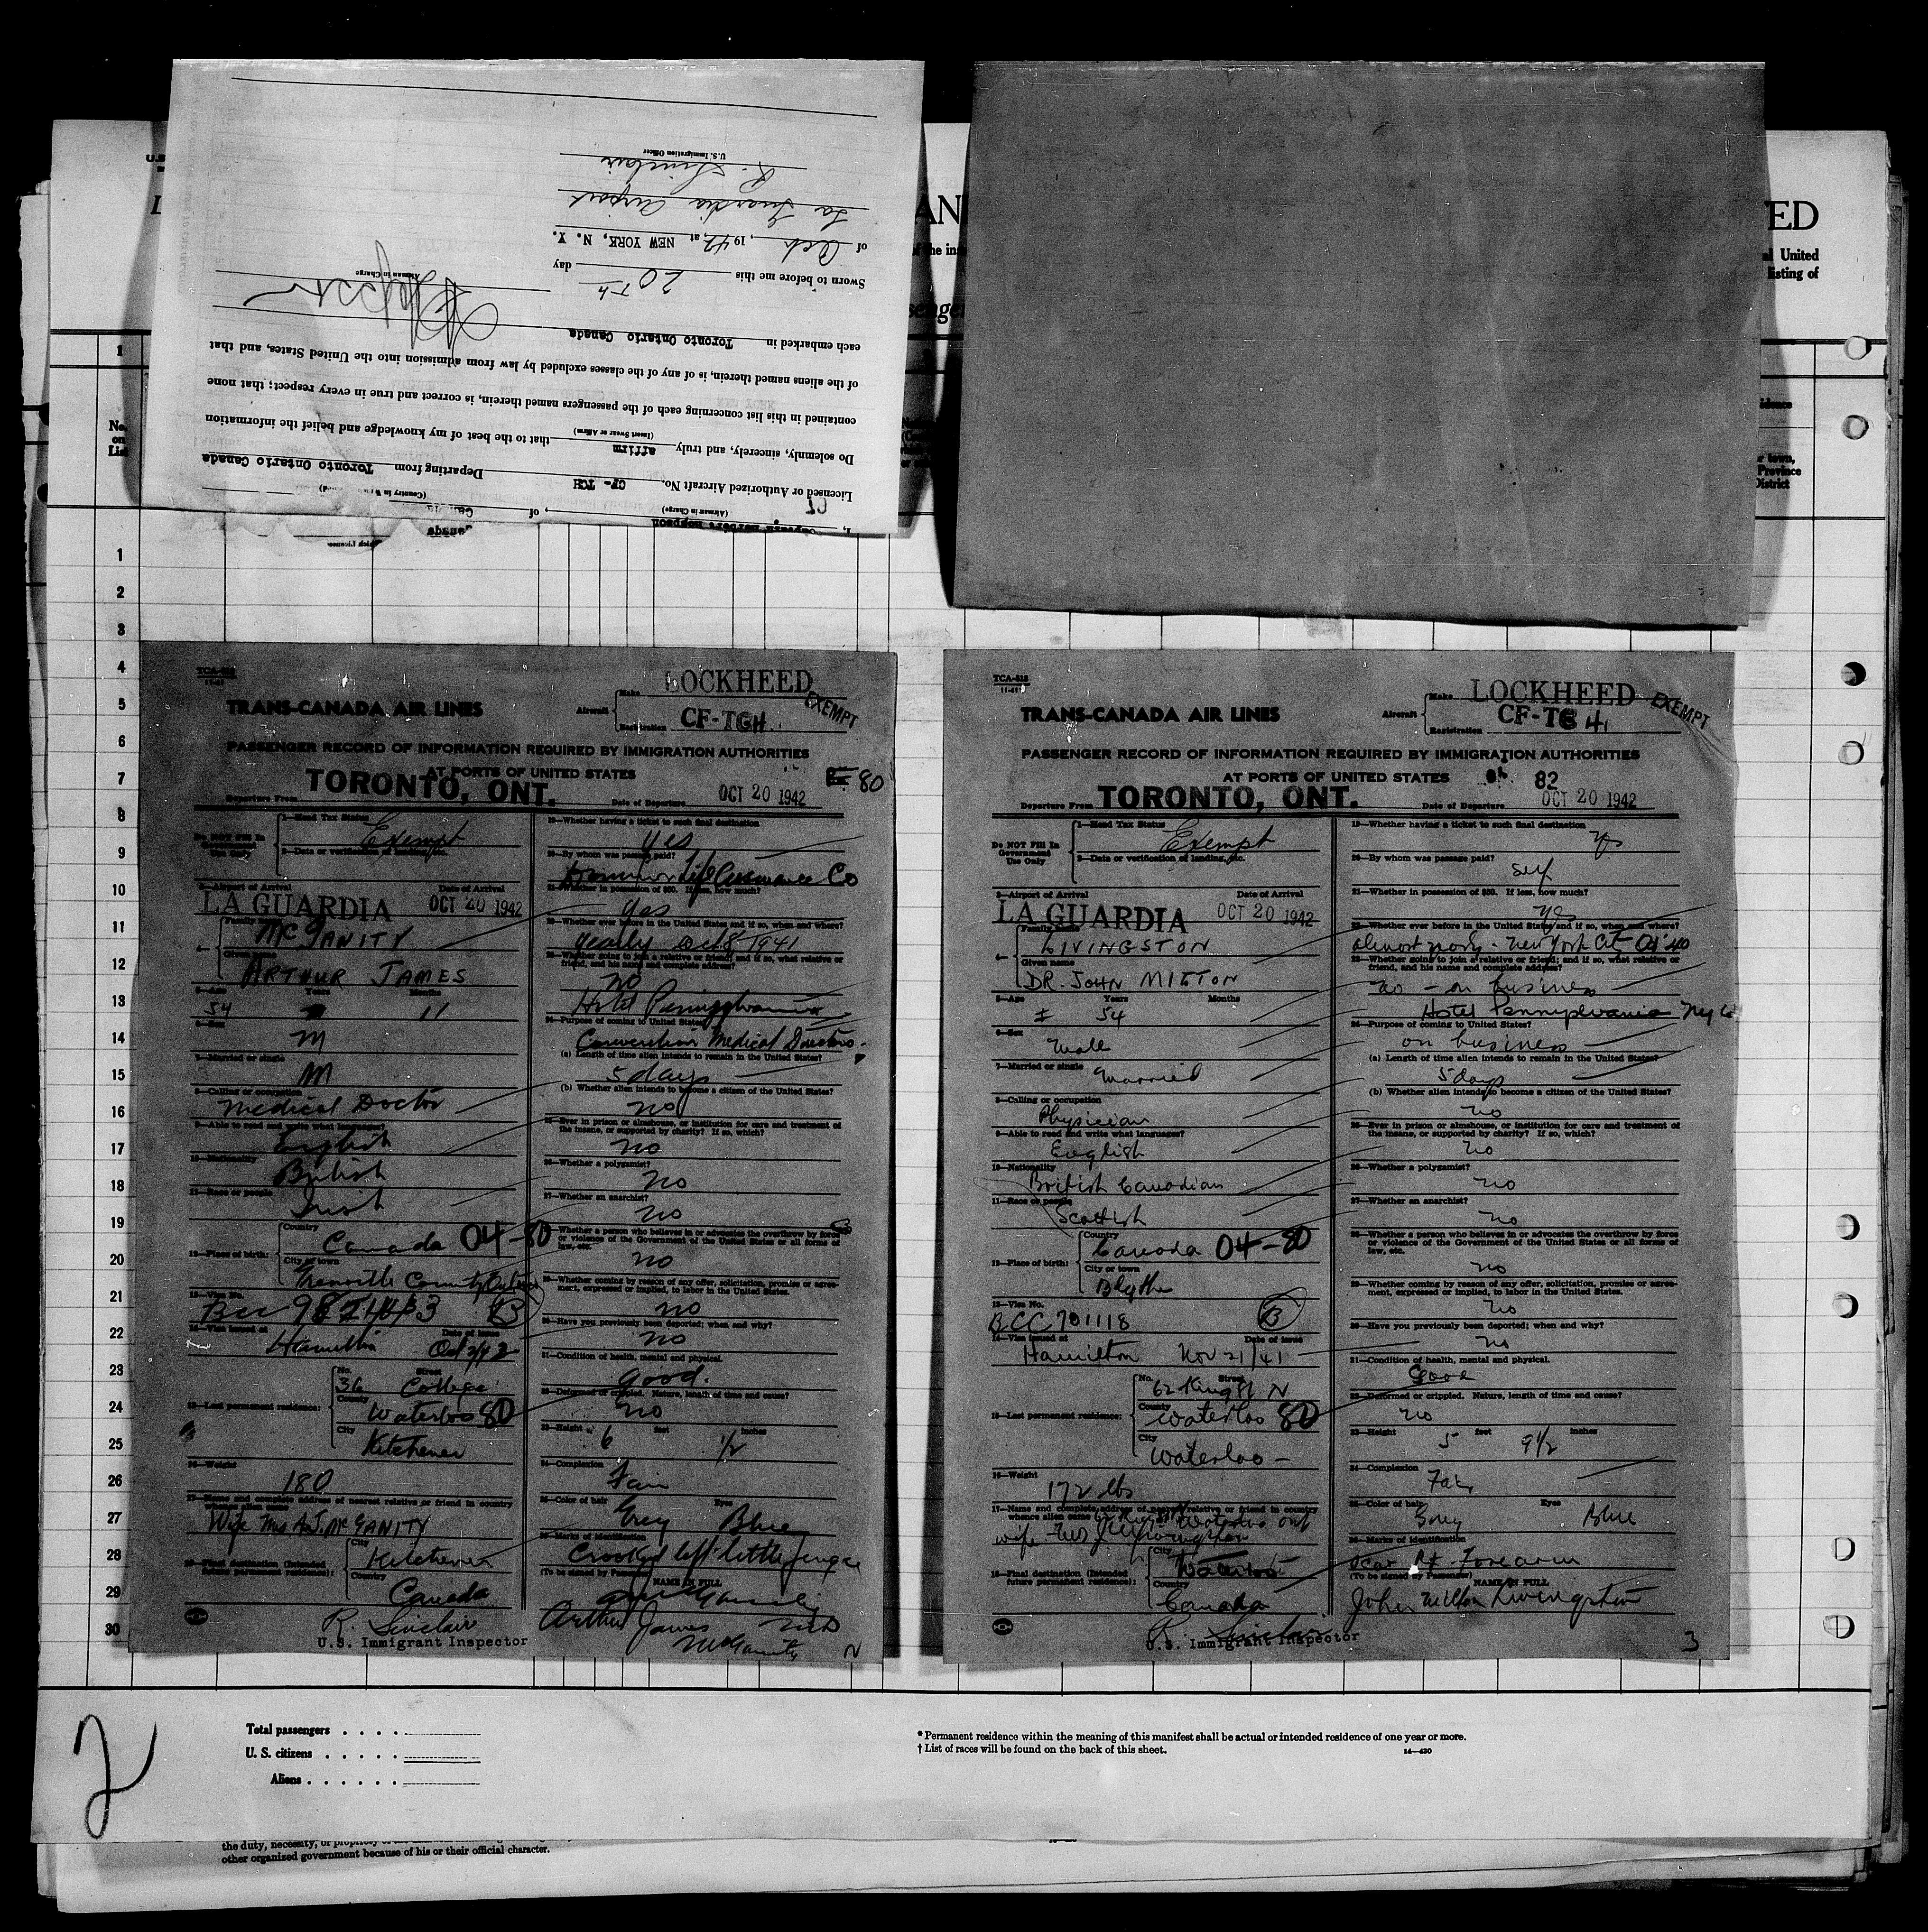 U.S. Immigration Officer
R. Sinclair
La Guardia Airport
of Oct, 1942, at NEW YORK, N. Y.
Sworn to before me this 20th day
Airman in Charge
each embarked in Toronto Ontario Canada
of the aliens named therein, is of any of the classes excluded by law from admission into the United States, and that
contained in this list concerning each of the passengers named therein, is correct and true in every respect; that none
(Insert Swear or Affirm)
Do solemnly, sincerely, and truly affirm that to the best of my knowledge and belief the information
Licensed or Authorized Aircraft No. CF-TCH Departing from Toronto Ontario Canada
(Airman in Charge)
I, Captain Herbert Hopson, of Canada
AN
ED
al United
listing of
1
No.
on
List
r town,
Province
District
1
2
3
4
5
6
7
8
9
10
11
12
13
14
15
16
17
18
19
20
21
22
23
24
25
26
27
28
29
30
TRANS-CANADA AIR LINES
Aircraft
Make LOCKHEED
Registration CF-TCH
EXEMPT
PASSENGER RECORD OF INFORMATION REQUIRED BY IMMIGRATION AUTHORITIES
AT PORTS OF UNITED STATES
80
Departure From TORONTO, ONT. Date of Departure OCT 20 1942
Do NOT Fill In
Government
Use Only
1—Head Tax Status
Exempt
2—Data or verification of landing, etc.
3—Airport of Arrival Date of Arrival
LA GUARDIA OCT 20 1942
4— Family name
McGANITY
Given name
ARTHUR JAMES
5—Age Years Months
54 11
6—Sex
M
7—Married or single
M
8—Calling or occupation
Medical Doctor
9—Able to read and write what languages?
English
10—Nationality
British
11—Race or people
Irish
12—Place of birth:
Country
Canada 04-80
City or town
Grenville County Ontario
13—Visa No.
BCC B
14—Visa issued at Date of issue
Hamilton
15—Last permanent residence:
No. Street
36 College
County
Waterloo 80
City
Kitchener
16—Weight
180
17—Name and complete address of nearest relative or friend in country
whence alien came
Wife Mrs A.J. McGANITY
18—Final destination (Intended
future permanent residence):
City
Kitchener
Country
Canada
R. Sinclair
U.S. Immigrant Inspector
19—Whether having a ticket to such final destination
Yes
20—By whom was passage paid?
Dominion Life Assurance Co
21—Whether in possession of $50. If less, how much?
Yes
22—Whether ever before in the United States and if so, when and where?
Yearly Oct 8 1941
23—Whether going to join a relative or friend; and if so, what relative or
friend, and his name and complete address?
NO
Hotel Pennsylvania
24—Purpose of coming to United States?
Convention Medical Directors
(a) Length of time alien intends to remain in the United States?
5 days
(b) Whether alien intends to become a citizen of the United States?
no
25—Ever in prison or almshouse, or institution for care and treatment of
the insane, or supported by charity? If so, which?
no
26—Whether a polygamist?
no
27—Whether an anarchist?
no
28—Whether a person who believes in or advocates the overthrow by force
or violence of the Government of the United States or all forms of
law, etc.
no
29—Whether coming by reason of any offer, solicitation, promise or agree-
ment, expressed or implied, to labor in the United States.
no
30—Have you previously been deported; when and why?
no
31—Condition of health, mental and physical.
Good.
32—Deformed or crippled. Nature, length of time and cause?
no
33—Height feet inches
6 1/2
34—Complexion
Fair
35—Color of hair Eyes
Grey Blue
36—Marks of identification
Crooked left little finger
(To be signed by Passenger) NAME IN FULL
Arthur James McGanity MD
TCA-818
11-41
TRANS-CANADA AIR LINES
Aircraft
Make LOCKHEED
Registration CF-TCH
EXEMPT
PASSENGER RECORD OF INFORMATION REQUIRED BY IMMIGRATION AUTHORITIES
AT PORTS OF UNITED STATES
82
Departure From TORONTO, ONT. Date of Departure OCT 20 1942
Do NOT Fill In
Government
Use Only
1—Head Tax Status
Exempt
2—Data or verification of landing, etc.
3—Airport of Arrival Date of Arrival
LA GUARDIA OCT 20 1942
4— Family name
LIVINGSTON
Given name
DR. JOHN MILTON
5—Age Years Months
54
6—Sex
Male
7—Married or single
Married
8—Calling or occupation
Physician
9—Able to read and write what languages?
English
10—Nationality
British Canadian
11—Race or people
Scottish
12—Place of birth:
Country
Canada 04-80
City or town
Blythe
13—Visa No.
BCC 701118 B
14—Visa issued at Date of issue
Hamilton Nov 21/41
15—Last permanent residence:
No. Street
62 King St N
County
Waterloo 80
City
Waterloo
16—Weight
172 lbs
17—Name and complete address of nearest relative or friend in country
whence alien came 62 King St Waterloo ont
wife Mrs J.M. Livingston
18—Final destination (Intended
future permanent residence):
City
Waterloo
Country
Canada
R. Sinclair
U.S. Immigrant Inspector
19—Whether having a ticket to such final destination
Yes
20—By whom was passage paid?
self
21—Whether in possession of $50. If less, how much?
Yes
22—Whether ever before in the United States and if so, when and where?
almost yearly - New York City Oct '40
23—Whether going to join a relative or friend; and if so, what relative or
friend, and his name and complete address?
no - on business
Hotel Pennsylvania
24—Purpose of coming to United States?
on business
(a) Length of time alien intends to remain in the United States?
5 days
(b) Whether alien intends to become a citizen of the United States?
no
25—Ever in prison or almshouse, or institution for care and treatment of
the insane, or supported by charity? If so, which?
no
26—Whether a polygamist?
no
27—Whether an anarchist?
no
28—Whether a person who believes in or advocates the overthrow by force
or violence of the Government of the United States or all forms of
law, etc.
no
29—Whether coming by reason of any offer, solicitation, promise or agree-
ment, expressed or implied, to labor in the United States.
no
30—Have you previously been deported; when and why?
no
31—Condition of health, mental and physical.
Good
32—Deformed or crippled. Nature, length of time and cause?
no
33—Height feet inches
5 9 1/2
34—Complexion
Fair
35—Color of hair Eyes
Grey Blue
36—Marks of identification
scar Rt. Forearm
(To be signed by Passenger) NAME IN FULL
John Milton Livingston
3
2
Total passengers . . . .
U. S. citizens . . . . .
Aliens . . . . . .
* Permanent residence within the meaning of this manifest shall be actual or intended residence of one year or more.
† List of races will be found on the back of this sheet. 14—430
the duty, necessity, or propriety
other organized government because of his or their official character.